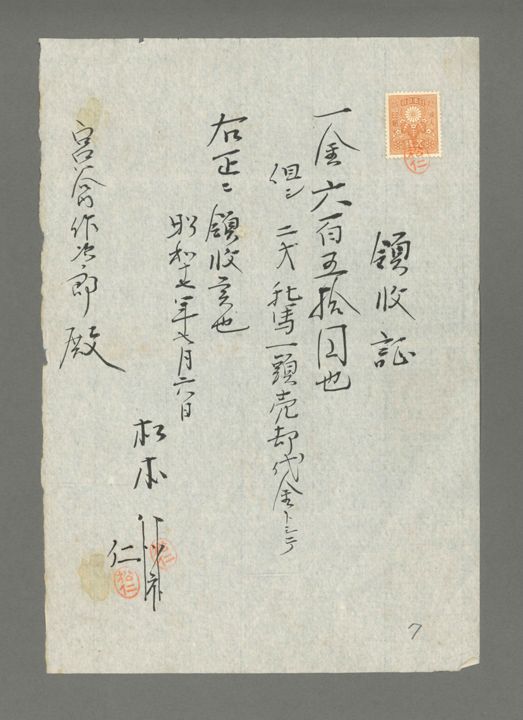 領収証
一金六百五拾円也
但シ 二才牝馬一頭売却代金トシテ
右正ニ領收候也
昭和十七年七月六日
松本
仁
宮谷作次郎殿
7